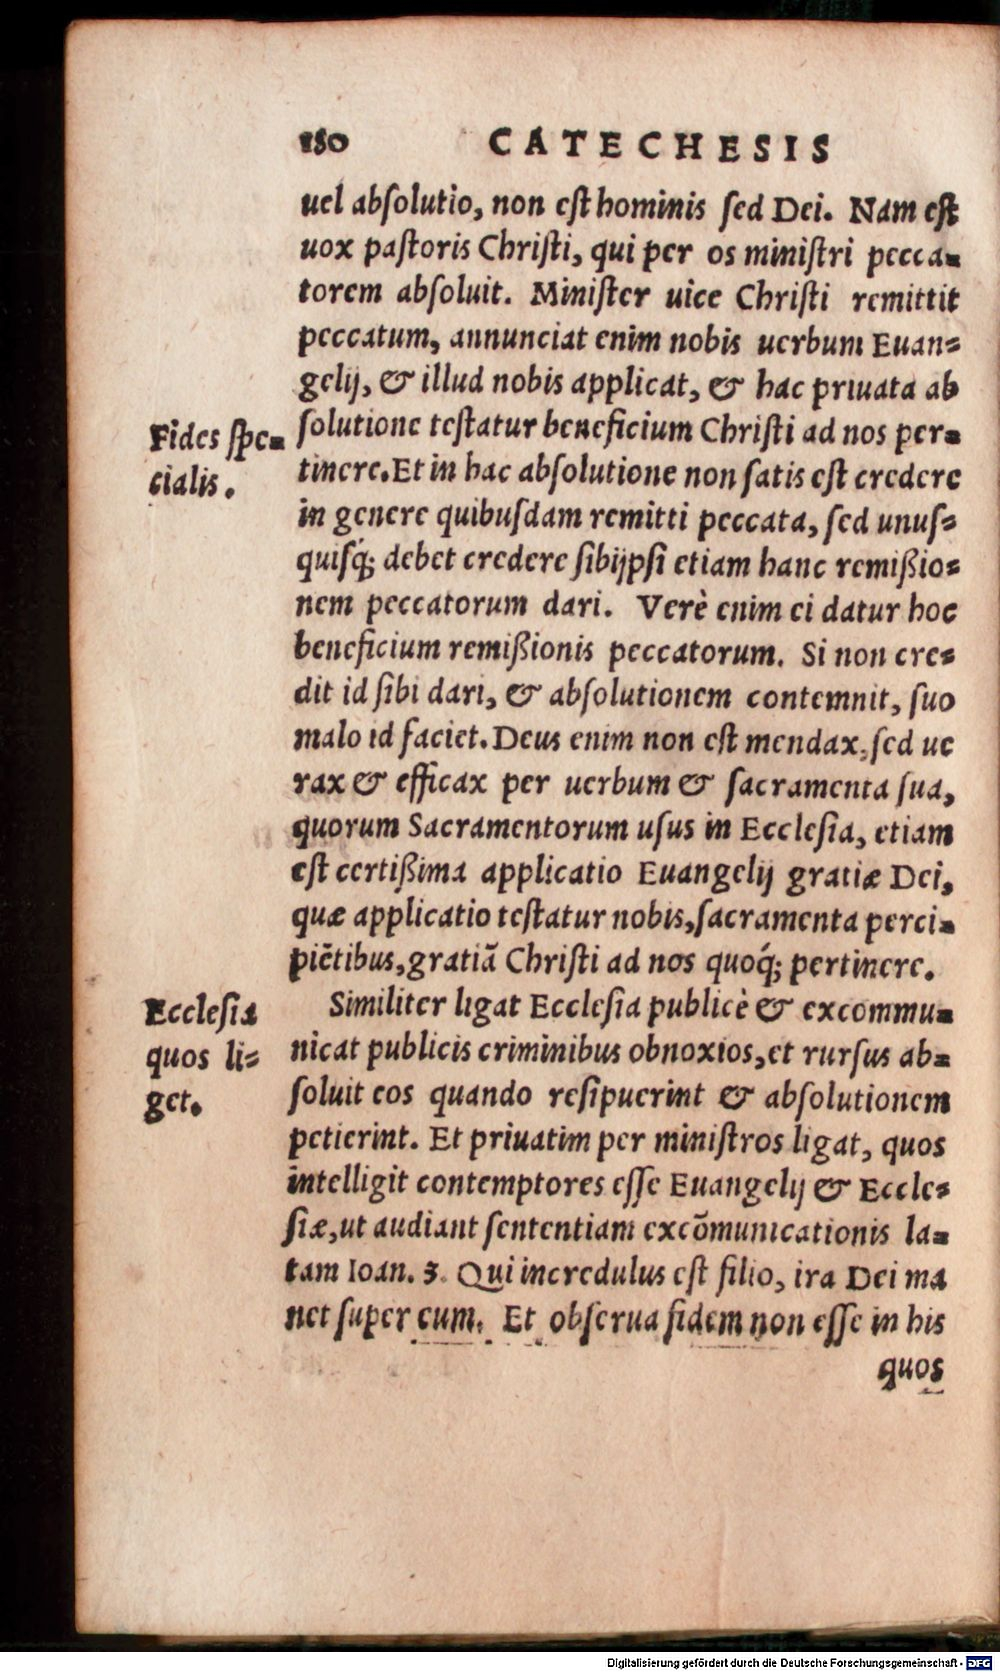 180 CATECHESIS
uel absolutio, non est hominis sed Dei. Nam est
uox pastoris Christi, qui per os ministri pecca-
torem absoluit. Minister uice Christi remittit
peccatum, annunciat enim nobis uerbum Euan-
gelij, & illud nobis applicat, & hac priuata ab
Fides spe-
cialis.
solutione testatur beneficium Christi ad nos per-
tinere. Et in hac absolutione non satis est credere
in genere quibusdam remitti peccata, sed unus-
quisq́; debet credere sibijpsi etiam hanc remißio-
nem peccatorum dari. Verè enim ei datur hoc
beneficium remißionis peccatorum. Si non cre-
dit id sibi dari, & absolutionem contemnit, suo
malo id faciet. Deus enim non est mendax, sed ue
rax & efficax per uerbum & sacramenta sua,
quorum Sacramentorum usus in Ecclesia, etiam
est certißima applicatio Euangelij gratiæ Dei,
quæ applicatio testatur nobis, sacramenta perci-
piẽtibus, gratiã Christi ad nos quoq́; pertinere.
Ecclesia
quos li-
get.
Similiter ligat Ecclesia publicè & excommu-
nicat publicis criminibus obnoxios, et rursus ab-
soluit eos quando resipuerint & absolutionem
petierint. Et priuatim per ministros ligat, quos
intelligit contemptores esse Euangelij & Eccle-
siæ, ut audiant sententiam excõmunicationis la-
tam Ioan. 3. Qui incredulus est filio, ira Dei ma
net super eum. Et obserua fidem non esse in his
quos
Digitalisierung gefördert durch die Deutsche Forschungsgemeinschaft - DFG